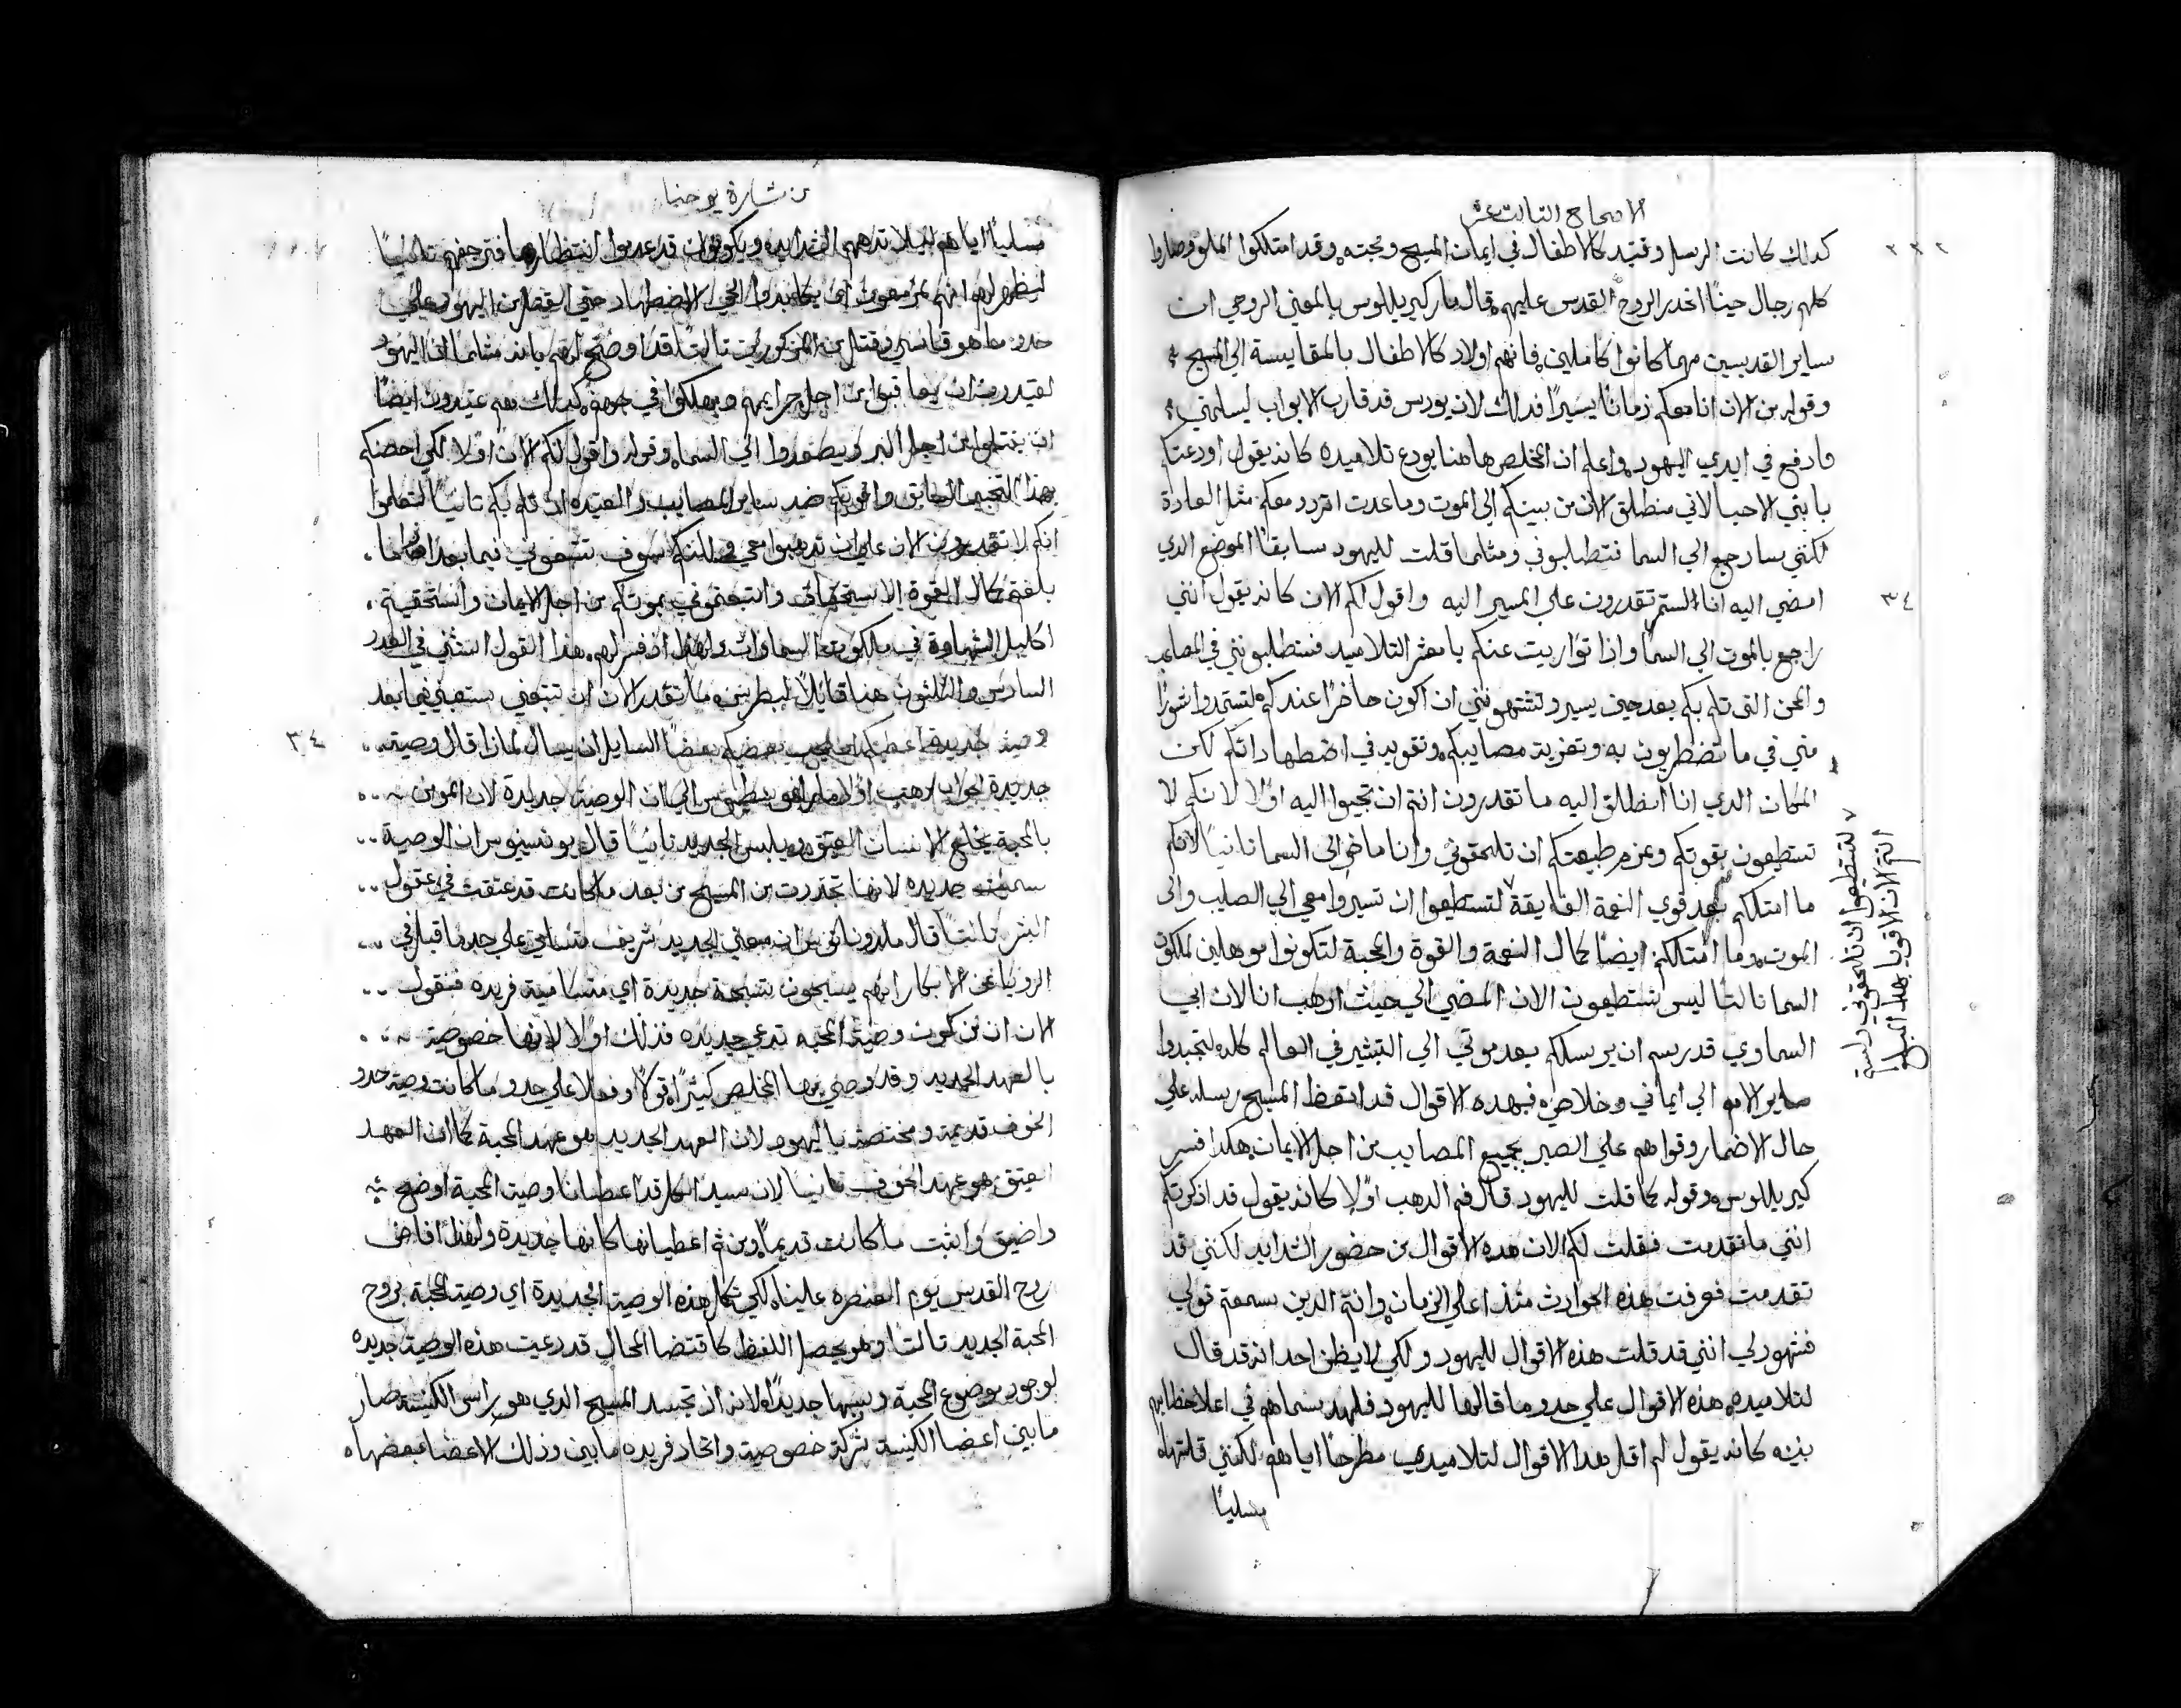 الاصحاح التالت عشر
٣٣٢
كدلك كانت الرسل وقتيد كالاطفال في ايمان المسيح ومحبته وقد امتلكوا الملو وصاروا
كلهم رجال حينا انحدر الروح القدس عليهم قال مار كيريللوس بالمعني الروحي ان
ساير القديسين مهما كانوا كاملين فانهم اولاد كالاطفال بالمقايسة الي المسيح
وقوله من الان انا معكم زمانا يسيرا فدلك لان يودس قد قارب الابواب ليسلمني
وادفع في ايدي اليهود واعلم ان المخلص هاهنا يودع تلاميده كانه يقول اودعتكم
يا بني الاحبا لاني منطلق الان من بينكم الي الموت وما عدت اتردد معكم مثل العادة
لكنني سارجع الي السما فتطلبوني ومثلما قلت لليهود سابقا الموضع الدي
امضي اليه انا الستم تقدرون علي المسير اليه واقول لكم الان كانه يقول انني
٣٤
راجع بالموت الي السما واذا تواريت عنكم يا معشر التلاميد فستطلبونني في المصايب
والمحن التي تلم بكم بعد حين يسير وتشتهونني ان اكون حاضرا عندكم لتستمدوا شورا
مني في ما تضطربون به وتعزية مصايبكم وتقويه في اضطهاداتكم لكن
المكان الدي انا انطلق اليه ما تقدرون انتم ان تجيوا اليه اولا لانكم لا
تستطيعون بقوتكم وعزم طبيعتكم ان تلحقوني وانا ماض الي السما تانيا لانكم
ما امتلكتم بعد قوي النعمة الفايقة لتستطيعوا ان تسيروا معي الي الصليب والي
الموت وما امتلكتم ايضا كمال النعمة والقوة والمحبة لتكونوا موهلين لملكوت
السما تالتا ليس تستطيعون الان المضي الي حيث ادهب انا لان ابي
السماوي قد رسم ان يرسلكم بعد موتي الي التبشير في العالم كله لتجتدبوا
ساير الامم الي ايماني وخلاصي فبهده الاقوال قد ايقظ المسيح رسله علي
حال الاضمار وقواهم علي الصبر بجميع المصايب من اجل الايمان هكدا فسر
كيريللوس وقوله كما قلت لليهود قال فم الدهب اولا كانه يقول قد اذكرتكم
انني ما تقدمت فقلت لكم الان هده الاقوال من حضور الشدايد لكنني قد
تقدمت فعرفت هذه الحوادث منذ اعلي الزمان وانتم الدين سمعتم قولي
فتشهدون لي انني قد قلت هذه الاقوال لليهود ولكي لا يظن احد انه قد قال
لتلاميده هذه الاقوال علي حدو ما قالها لليهود فلهدا سماهم في اعلا خطابهم
بنيه كانه يقول لم اقل هدا الاقوال لتلاميدي مطرحا اياهم لكنني قلتها
مسليا
لتستطيعوا ان تلحقوني ولستم
انتم الان الاقويا بهدا المبلغ
من بشارة يوحنا
مسليا اياهم ليلا تدهمهم الشدايد ويكونوا قد عدموا انتظارها فترجفهم تانيا
ليظهر لهم انهم مزمعون ان يكابدوا الي الاضطهاد حتي القتل من اليهود علي
حدو ما هو قاسي وقتل من المدكورين تالتا قد اوضح لهم بانه مثلما ان اليهود
عتيدون ان يعاقبوا من اجل جرايمهم ويهلكوا في جهنم كدلك هم عتيدون ايضا
ان يقتلوا من اجل البر ويصعدوا الي السما وقوله واقول لكم الان اولا لكي احضكم
بهدا التحبب الفايق واقويكم ضد ساير المصايب والعتيده ان تلم بكم تانيا لتعلموا
انكم لا تقدرون الان علي ان تدهبوا معي ولكنكم سوف تتبعوني فيما بعد
بلغتم كمال القوة الاستحقاق واتبعتموني بموتكم من اجل الايمان واستحقيتم
اكليل الشهادة في ملكوت السماوات ولهدا اذ فسر لهم هذا القول استثني في العدد
السادس والثلثون هنا قايلا لبطرس ما تقدر الان ان تتبعني ستتبعني فيما بعد
وصية جديدة اعطيكم ان يحب بعضكم بعضا السايل ان يسال لماذا قال وصية
٣٤
جديدة الجواب دهب اولا مار اغوسطينوس الي ان الوصية جديدة لان المومن
بالمحبة يخلع الانسان العتيق ويلبس الجديد تانيا قال يونسنيوس ان الوصية
سميت جديده لانها تجددت من المسيح من بعد ما كانت قد عتقت في عقول
البشر تالتا قال ملدوناتوس ان معني الجديد شريف متسامي علي حدو ما قيل في
الرويا عن الابكار انهم يسبحون تسبحة جديدة اي متسامية فريده فنقول
الان ان تكون وصية المحبه تدعي جديده فذلك اولا لانها خصوصية
بالعهد الجديد وقد وصي بها المخلص كثيرا قولا وفعلا علي حدو ما كانت وصية
الخوف قديمة ومختصة باليهود لان العهد الجديد هو عهد المحبة كما ان العهد
العتيق هو عهد الخوف تانيا لان سيد الكل قد اعطانا وصية المحبة اوضح
واضيق واثبت ما كانت قديما ومن ثم اعطيانها كانها جديدة ولهدا افاض
روح القدس يوم العنصره علينا لكي نكمل هذه الوصية الجديدة اي وصية المحبة بروح
المحبة الجديد تالتا وهو يحصل اللفظ كاقتضا الحال قد دعيت هذه الوصية جديده
لوجود موضوع المحبة وسببها جديدا لانه اذ تجسد المسيح الدي هو راس الكنيسة صار
ما بين اعضا الكنيسة شركة خصوصية واتحاد فريده ما بين وذلك الاعضا بعضها